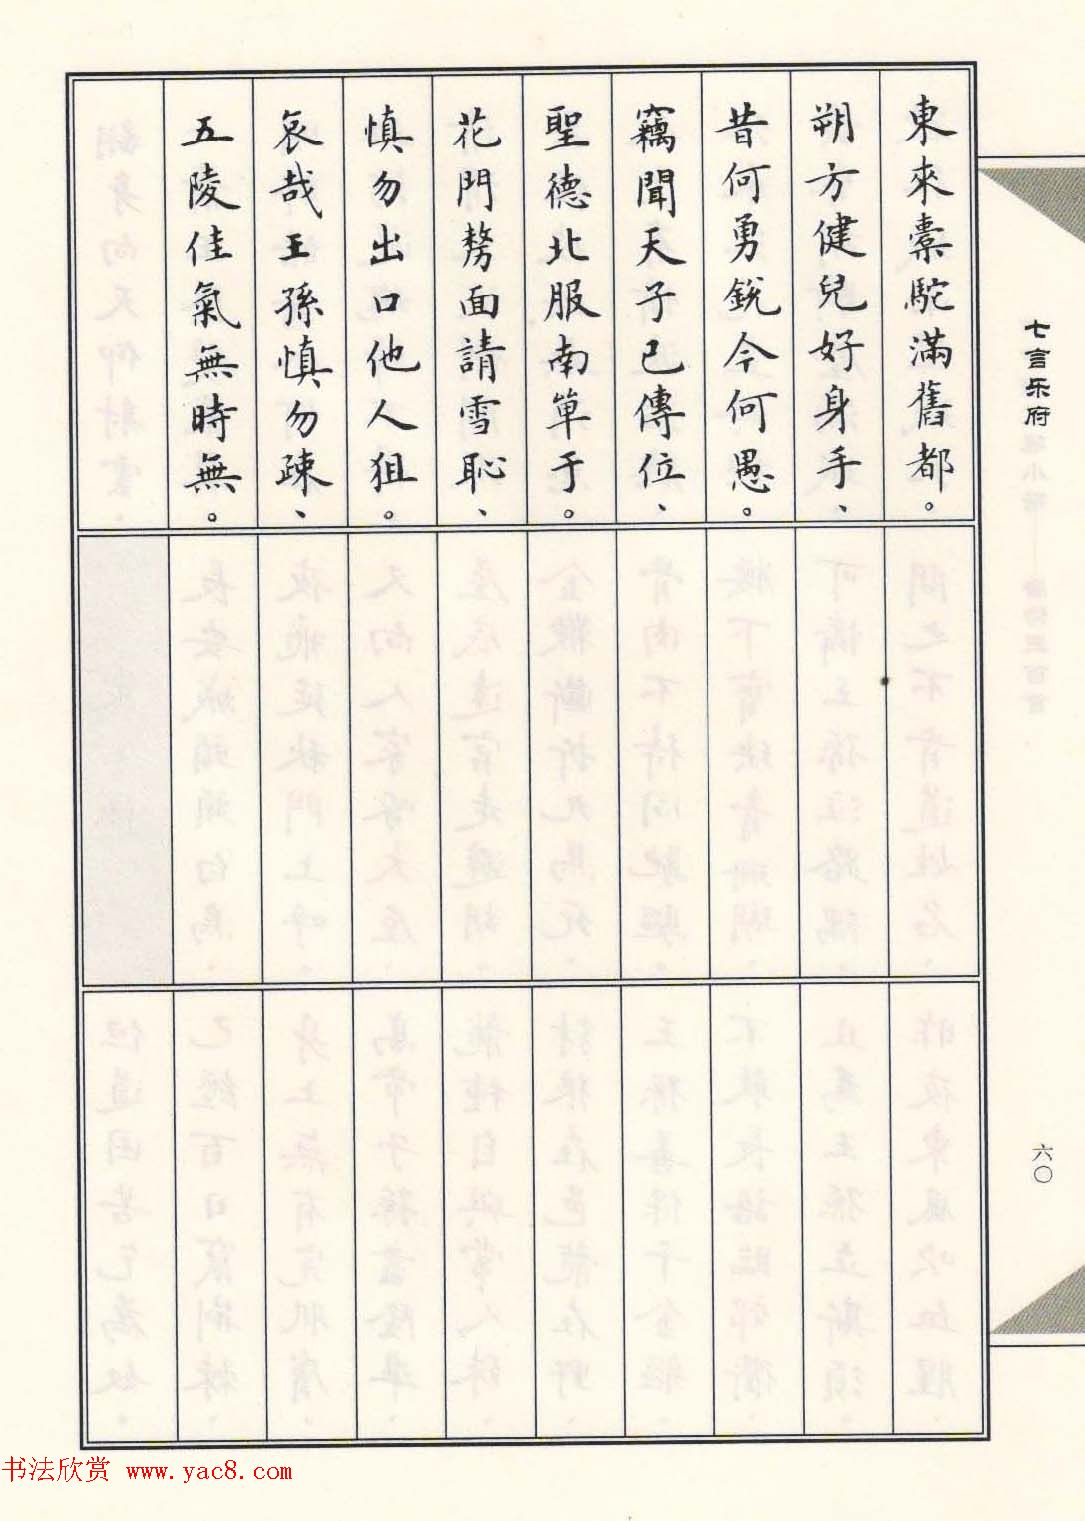 東來橐駝滿舊都。
朔方健兒好身手、
昔何勇銳今何愚。
竊聞天子已傳位、
聖德北服南單于。
花門剺面請雪恥、
慎勿出口他人狙。
哀哉王孫慎勿疎、
五陵佳氣無時無。
七言乐府
六〇
书法欣赏 www.yac8.com